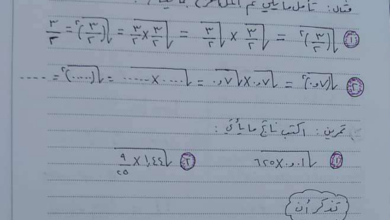 مثال: تأمل ما يلي ثم
① √(٣/٢)² = √(٣/٢ × ٣/٢) = √٣/٢ × √٣/٢ = √(٣/٢)² = ٣/٢
② √(٠,٧)² = √٠,٧ × ٠,٧ = √..... × ..... = √(.....)² = .....
تمرين: اكتب ناتج ما يأتي:
① √٠,٠١ × ٦٢٥ ② √١,٤٤ × ٩/٢٥
تذكر أن